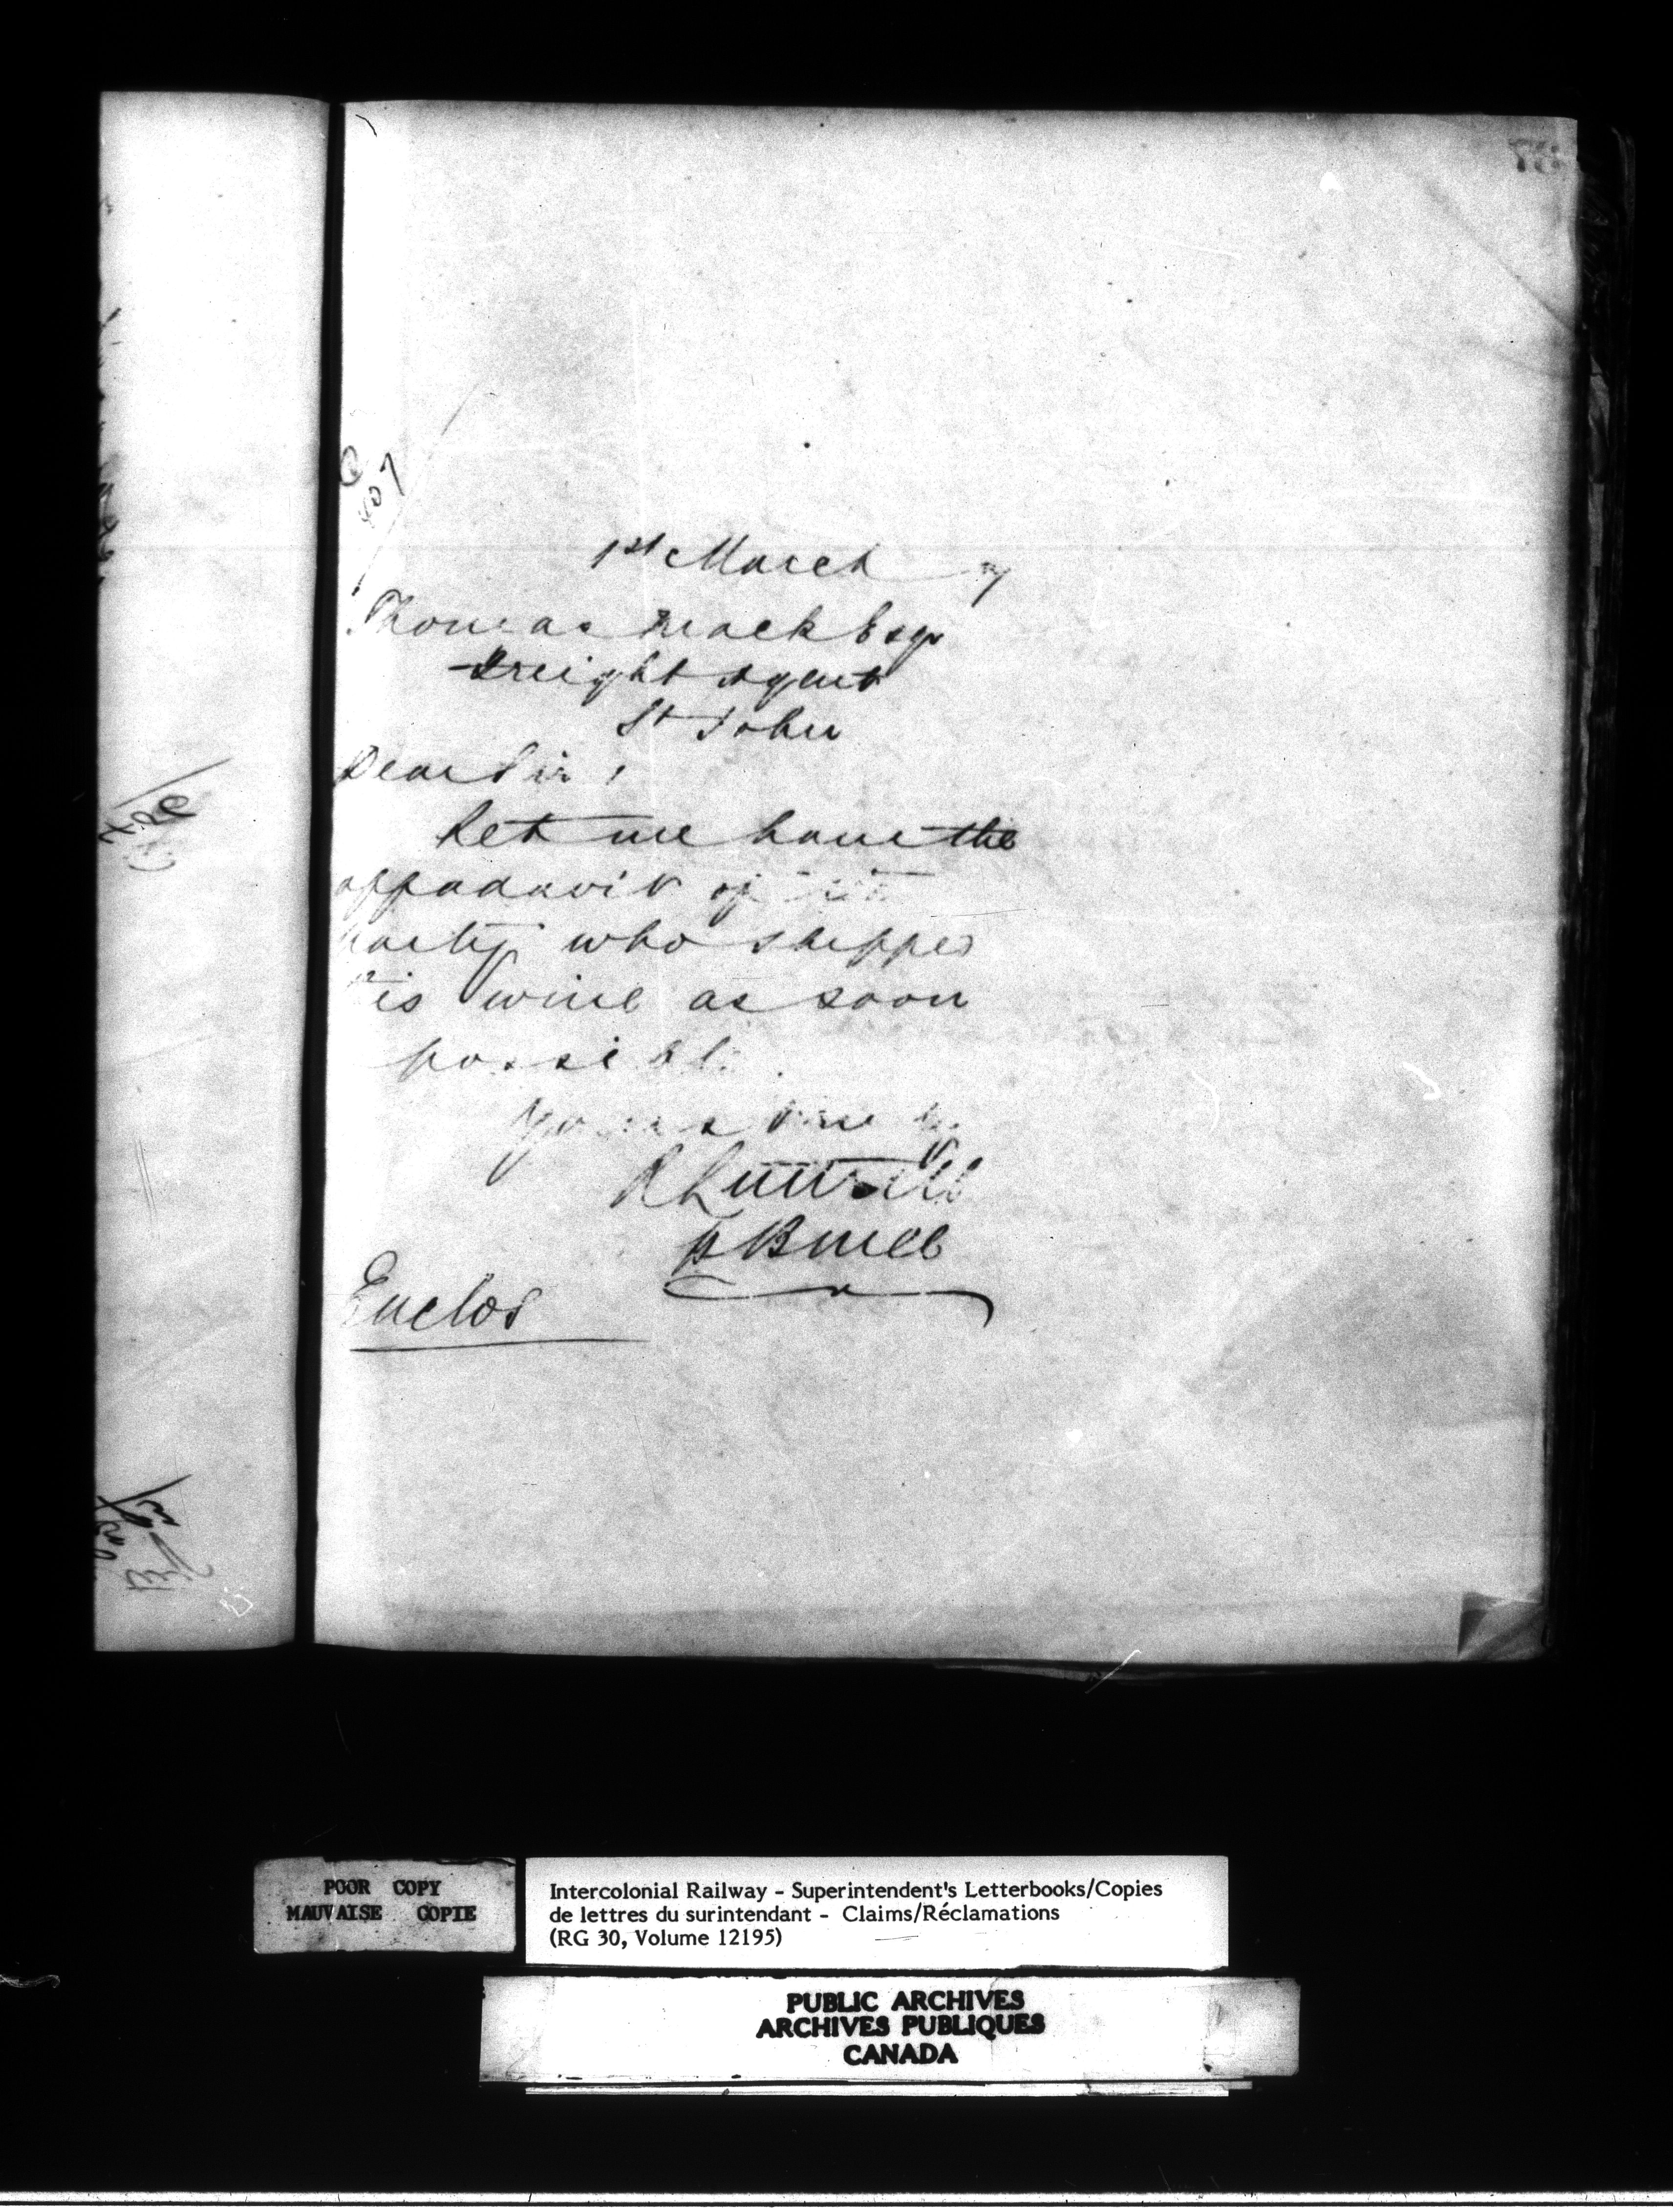 1st March 7
Thomas Mack Esqr
Freight Agent
St John
Dear Sir,
Let me have the
affadavit of
party who shipped
this wine as soon
possible.
Yours truly
R Luttrell
p Bruce
Enclos
POOR COPY
MAUVAISE COPIE
Intercolonial Railway - Superintendent's Letterbooks/Copies
de lettres du surintendant - Claims/Réclamations
(RG 30, Volume 12195)
PUBLIC ARCHIVES
ARCHIVES PUBLIQUES
CANADA